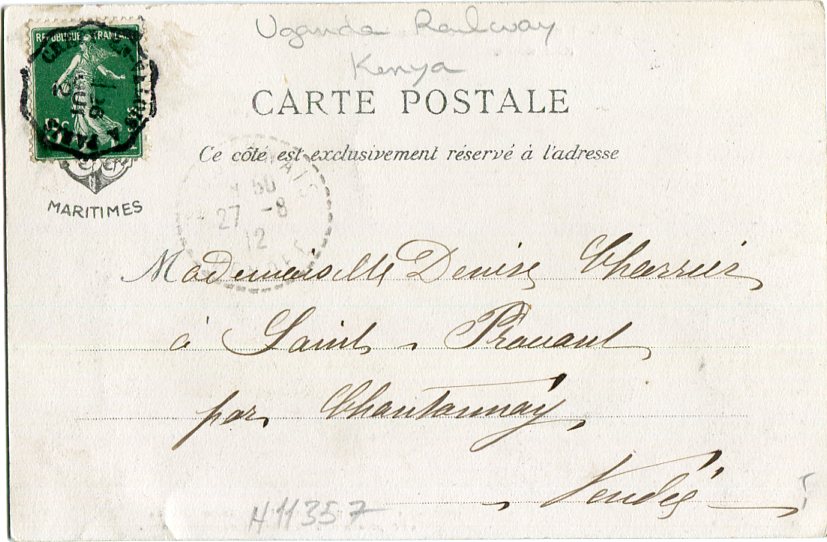 Uganda Railway
Kenya
REPUBLIQUE FRANÇAISE
CARTE POSTALE
Ce côté est exclusivement réservé à l'adresse
MARITIMES
27 -8
12
Mademoiselle Denise Charrier
à Saint Prouant
par Chantonnay
Vendée
H11357